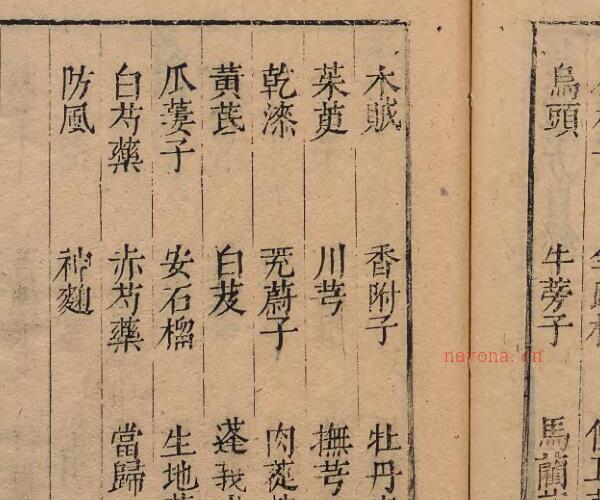 烏頭 牛蒡子 馬藺
木賊 香附子 牡丹
茱萸 川芎 撫芎
乾漆 茺蔚子 肉蓯
黃芪 白芨 蓬莪
瓜蔞子 安石榴 生地
白芍藥 赤芍藥 當歸
防風 神麯
nayona.cn